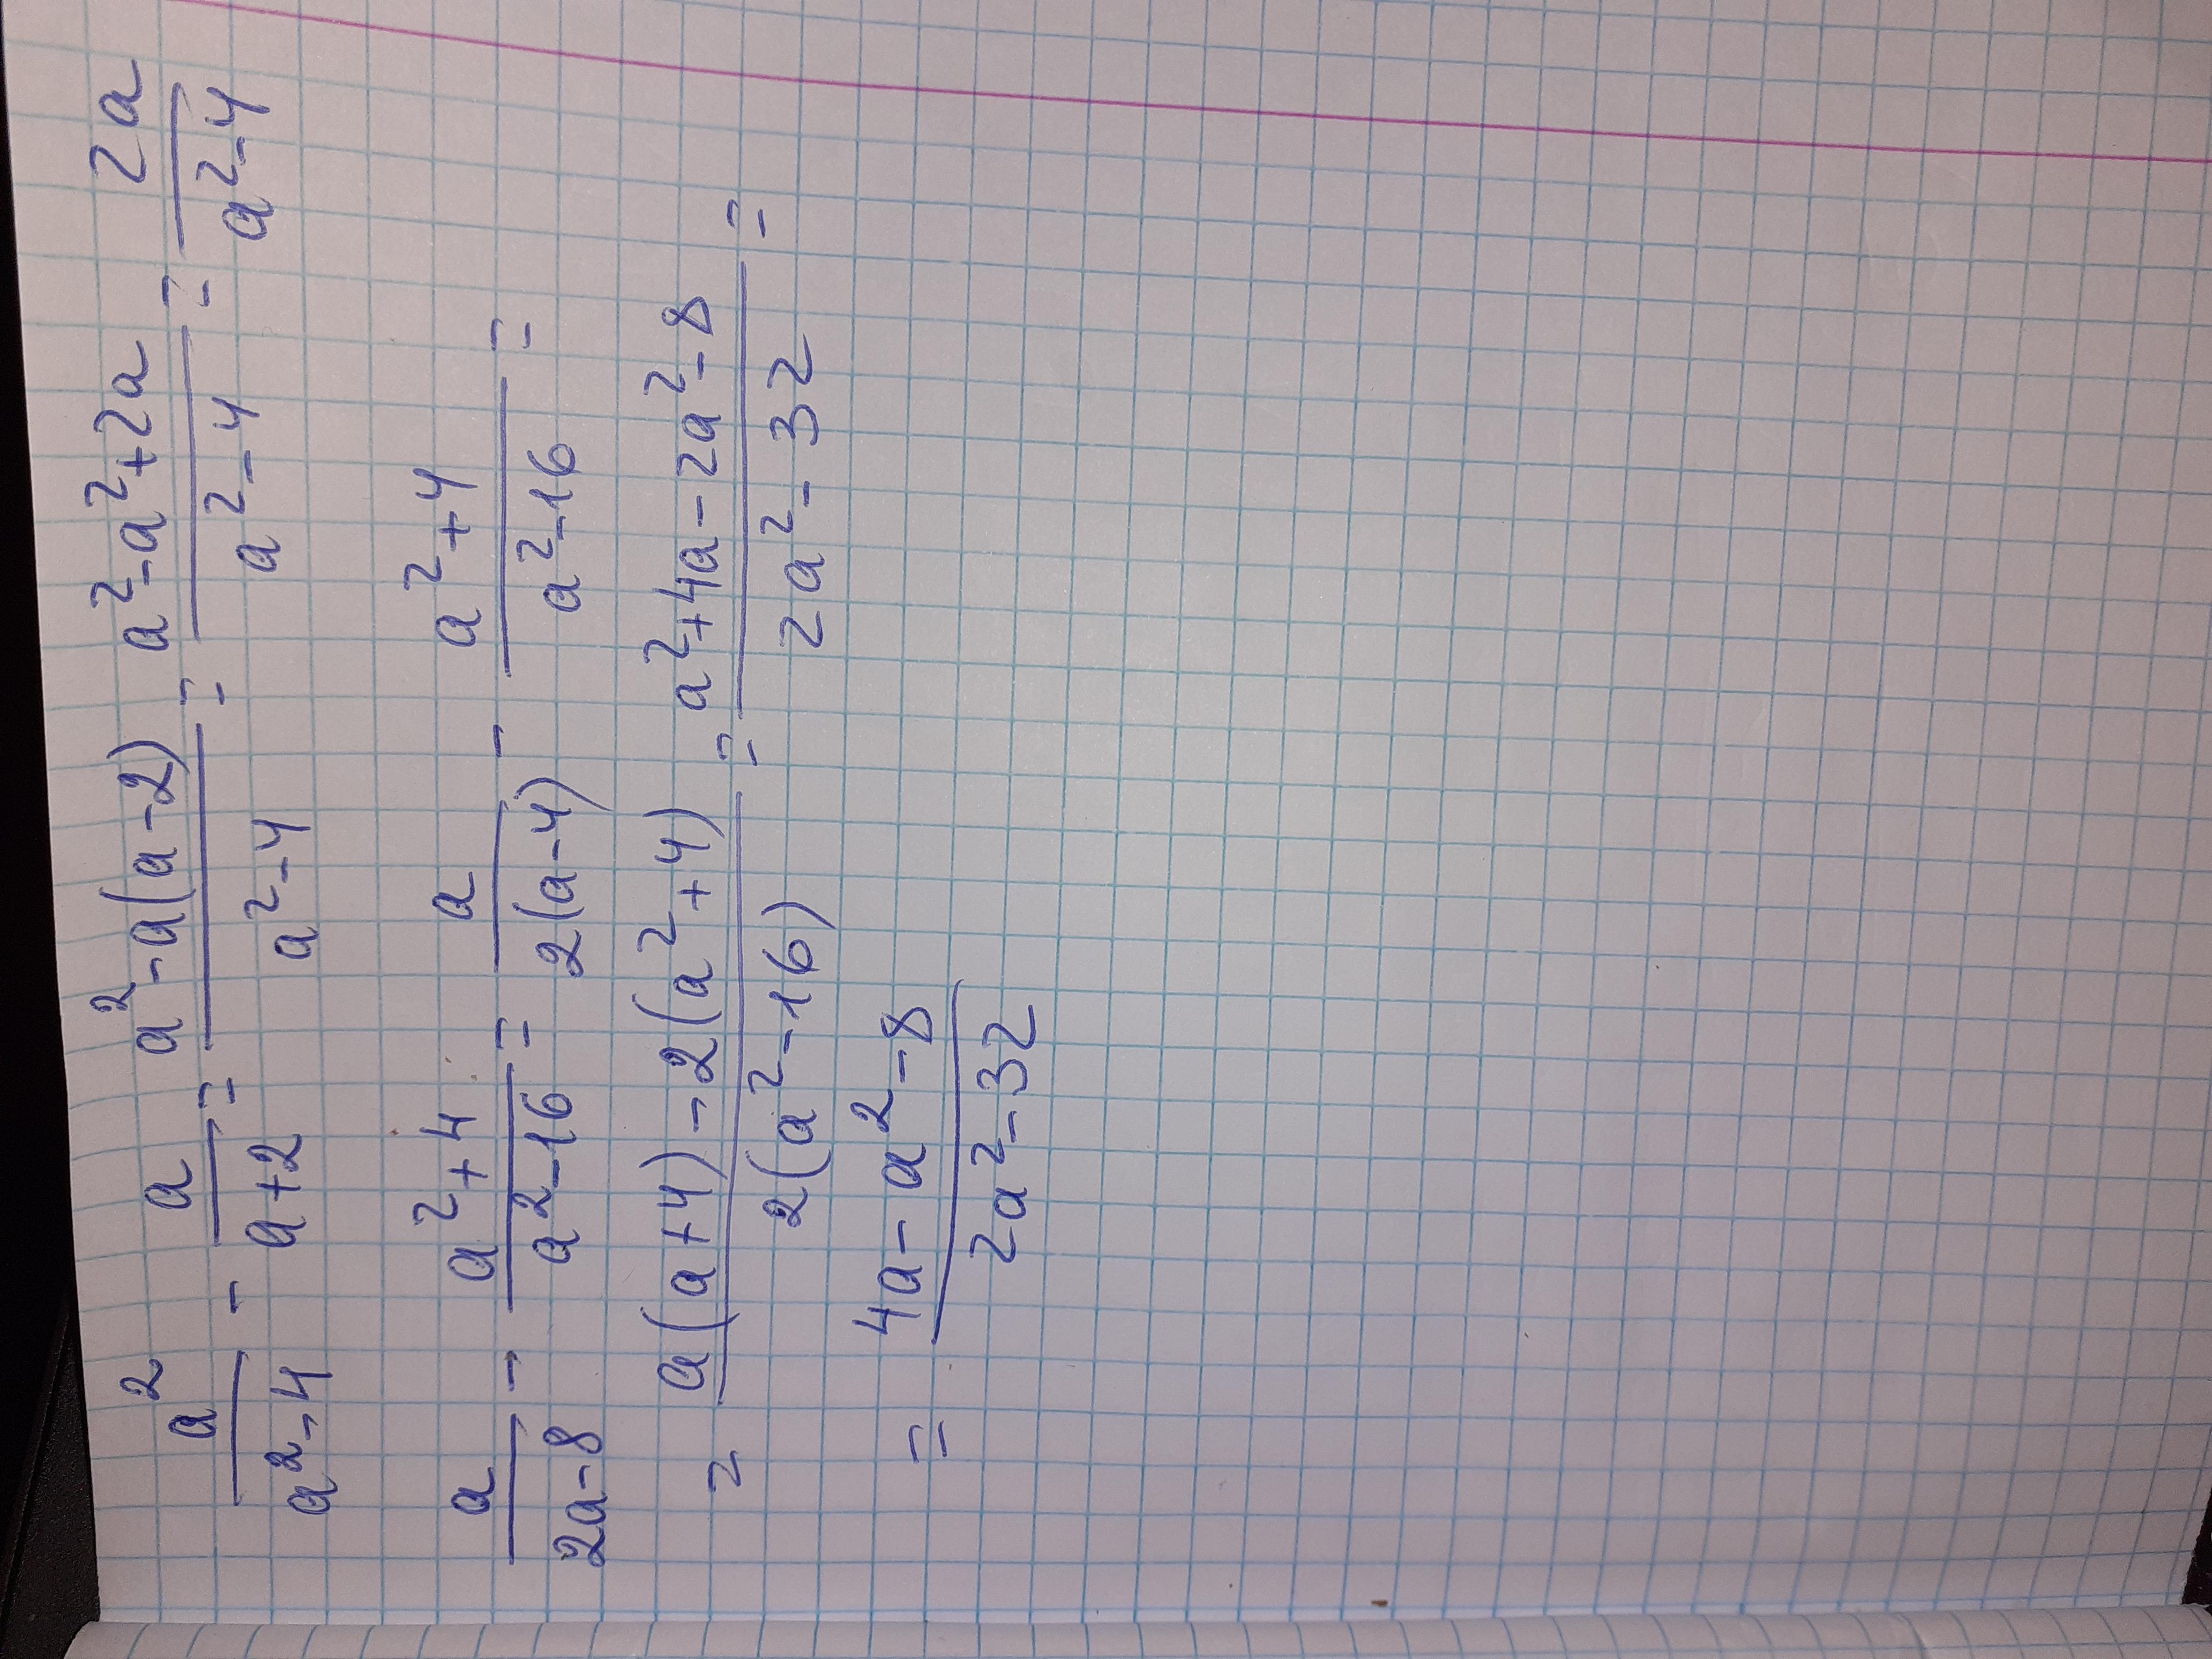 a²/(a²-4) - a/(a+2) = (a²-a(a-2))/(a²-4) = (a²-a²+2a)/(a²-4) = 2a/(a²-4)
a/(2a-8) - (a²+4)/(a²-16) = a/(2(a-4)) - (a²+4)/(a²-16) =
= (a(a+4)-2(a²+4))/(2(a²-16)) = (a²+4a-2a²-8)/(2a²-32) =
= (4a-a²-8)/(2a²-32)